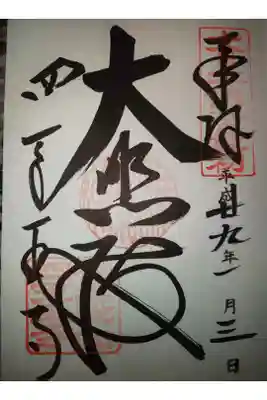 奉拝
平成廿九年一月三日
大悲殿
四天王寺